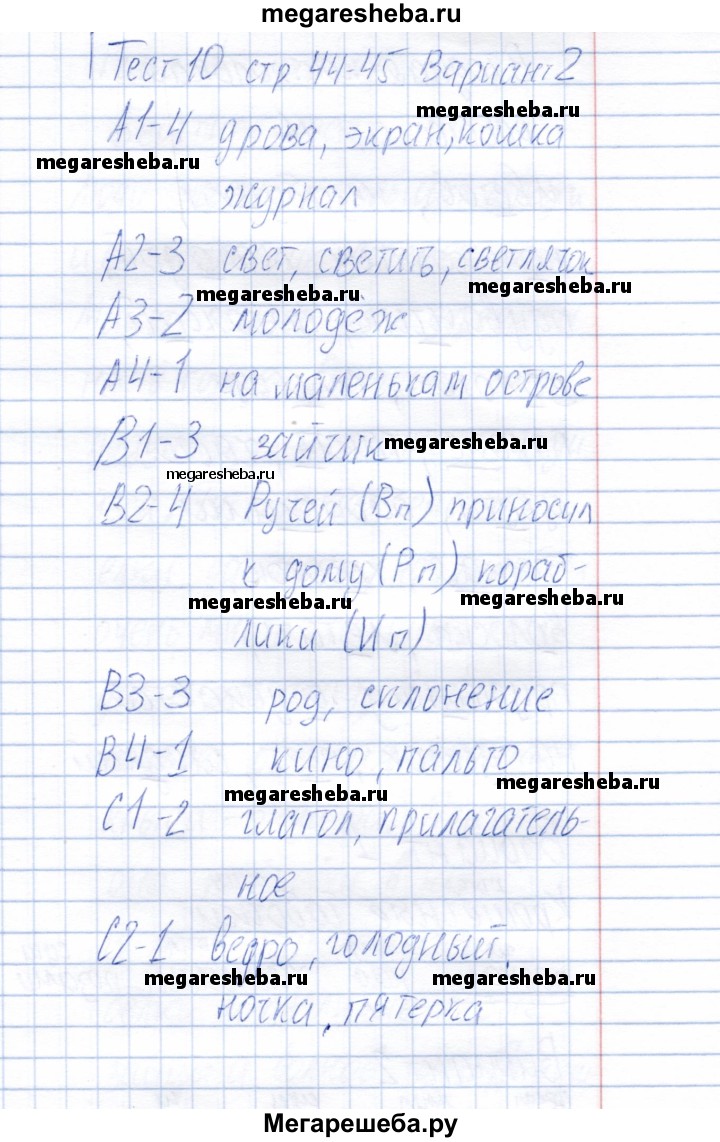 megaresheba.ru
Тест 10 стр 44-45 Вариант 2
megaresheba.ru
А1-4 дрова, экран, кошка
megaresheba.ru
журнал
А2-3 свет, светить, светлячок
megaresheba.ru megaresheba.ru
А3-2 молодёж
А4-1 на маленькам острове
В1-3 зайчик megaresheba.ru
megaresheba.ru
В2-4 Ручей (Вп) приносил
к дому (Рп) кораб-
megaresheba.ru megaresheba.ru
лики (Ип)
В3-3 род, склонение
В4-1 кино, пальто
megaresheba.ru megaresheba.ru
С1-2 глагол, прилагатель-
ное
С2-1 ведро, голодный,
megaresheba.ru megaresheba.ru
ночка, пятерка
Мегарешеба.ру